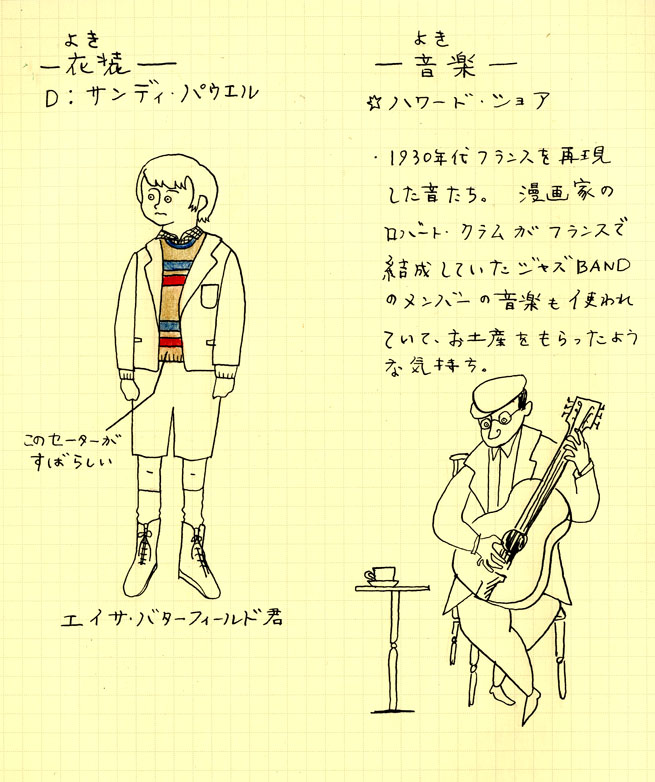 よき
ー衣装ー
D：サンディ・パウエル
このセーターが
すばらしい
エイサ・バターフィールド君
よき
ー音楽ー
☆ハワード・ショア
・1930年代フランスを再現
した音たち。 漫画家の
ロバート・クラムがフランスで
結成していたジャズBAND
のメンバーの音楽も使われ
ていて、お土産をもらったよう
な気持ち。